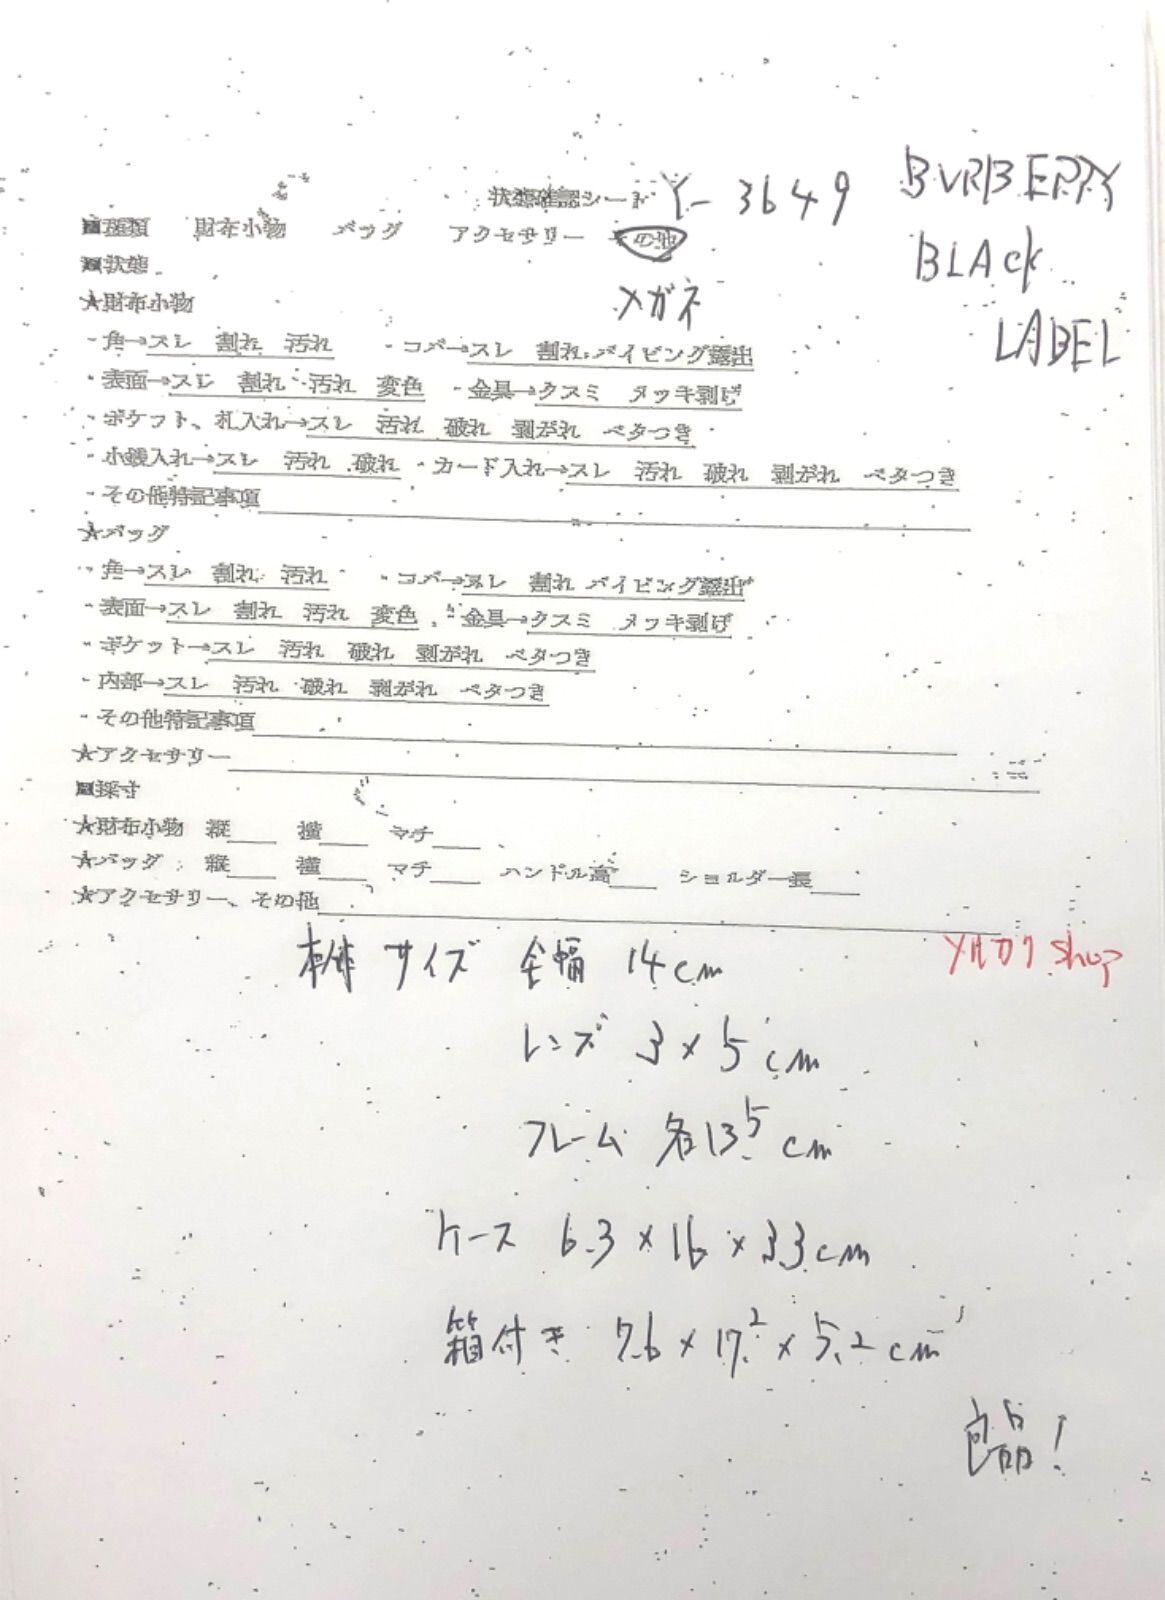 状態確認シート Y-3649 BURBERRY
■種類 財布小物 バッグ アクセサリー その他 BLACK
■状態 LABEL
★財布小物 メガネ
・角→スレ 割れ 汚れ ・コバ→スレ 割れ パイピング露出
・表面→スレ 割れ 汚れ 変色 ・金具→クスミ メッキ剥げ
・ポケット、札入れ→スレ 汚れ 破れ 剥がれ ベタつき
・小銭入れ→スレ 汚れ 破れ ・カード入れ→スレ 汚れ 破れ 剥がれ ベタつき
・その他特記事項
★バッグ
・角→スレ 割れ 汚れ ・コバ→スレ 割れ パイピング露出
・表面→スレ 割れ 汚れ 変色 ・金具→クスミ メッキ剥げ
・ポケット→スレ 汚れ 破れ 剥がれ ベタつき
・内部→スレ 汚れ 破れ 剥がれ ベタつき
・その他特記事項
★アクセサリー
■採寸
★財布小物 縦 横 マチ
★バッグ 縦 横 マチ ハンドル高 ショルダー長
★アクセサリー、その他
メルカリ shop
本体サイズ 全幅 14cm
レンズ 3×5cm
フレーム 各13.5cm
ケース 6.3×16×3.3cm
箱付き 7.6×17.2×5.2cm
良品!